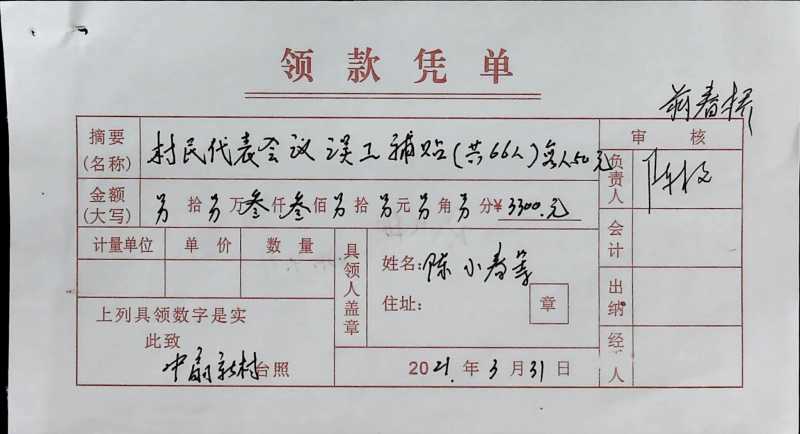 领款凭单
摘要(名称) 村民代表会议误工补贴(共66人)每人50元
审核
负责人 陈
金额(大写) 拾 万叁仟叁佰 拾 元 角 分¥3300.元
会计
计量单位 单价 数量
具领人盖章
姓名:陈小春等
住址:
章
出纳
上列具领数字是实
此致
新村台照
2021.年3月31日
经 人